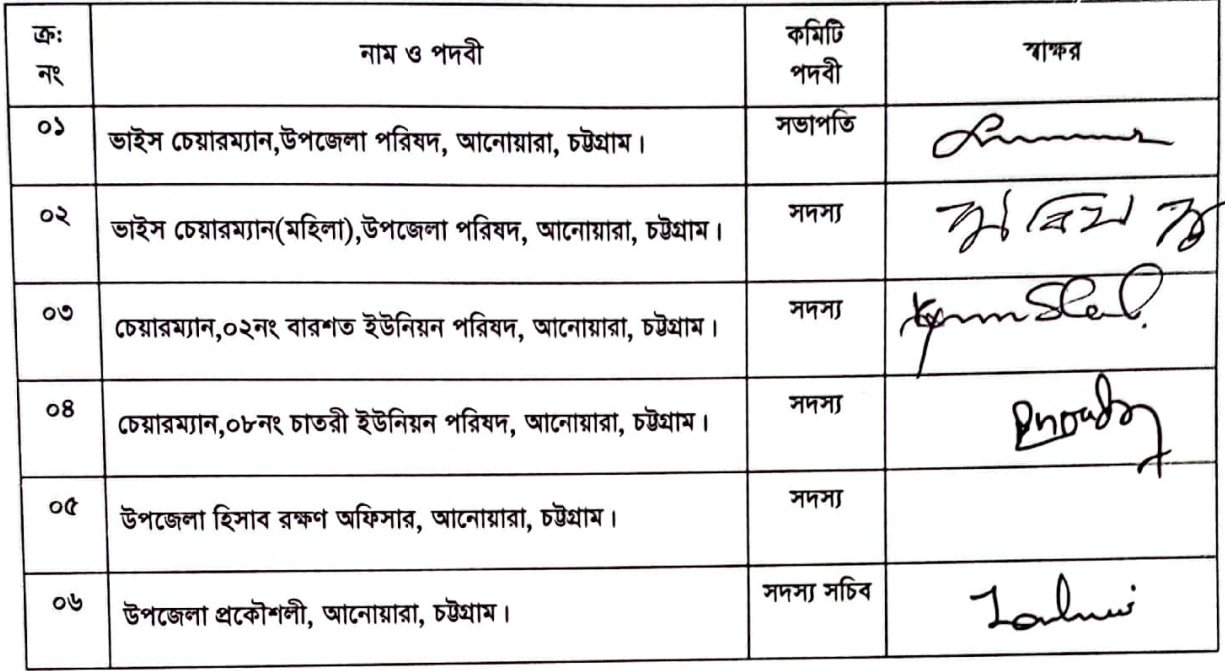 ক্রঃ নং নাম ও পদবী কমিটি পদবী স্বাক্ষর
০১ ভাইস চেয়ারম্যান,উপজেলা পরিষদ, আনোয়ারা, চট্টগ্রাম। সভাপতি
০২ ভাইস চেয়ারম্যান(মহিলা),উপজেলা পরিষদ, আনোয়ারা, চট্টগ্রাম। সদস্য
০৩ চেয়ারম্যান,০২নং বারশত ইউনিয়ন পরিষদ, আনোয়ারা, চট্টগ্রাম। সদস্য
০৪ চেয়ারম্যান,০৮নং চাতরী ইউনিয়ন পরিষদ, আনোয়ারা, চট্টগ্রাম। সদস্য
০৫ উপজেলা হিসাব রক্ষণ অফিসার, আনোয়ারা, চট্টগ্রাম। সদস্য
০৬ উপজেলা প্রকৌশলী, আনোয়ারা, চট্টগ্রাম। সদস্য সচিব